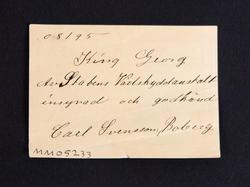 08195
King Georg
Av Stabens Världskyddanstalt
insyrad och godkänd
Carl Svensson, Boberg.
MM05233